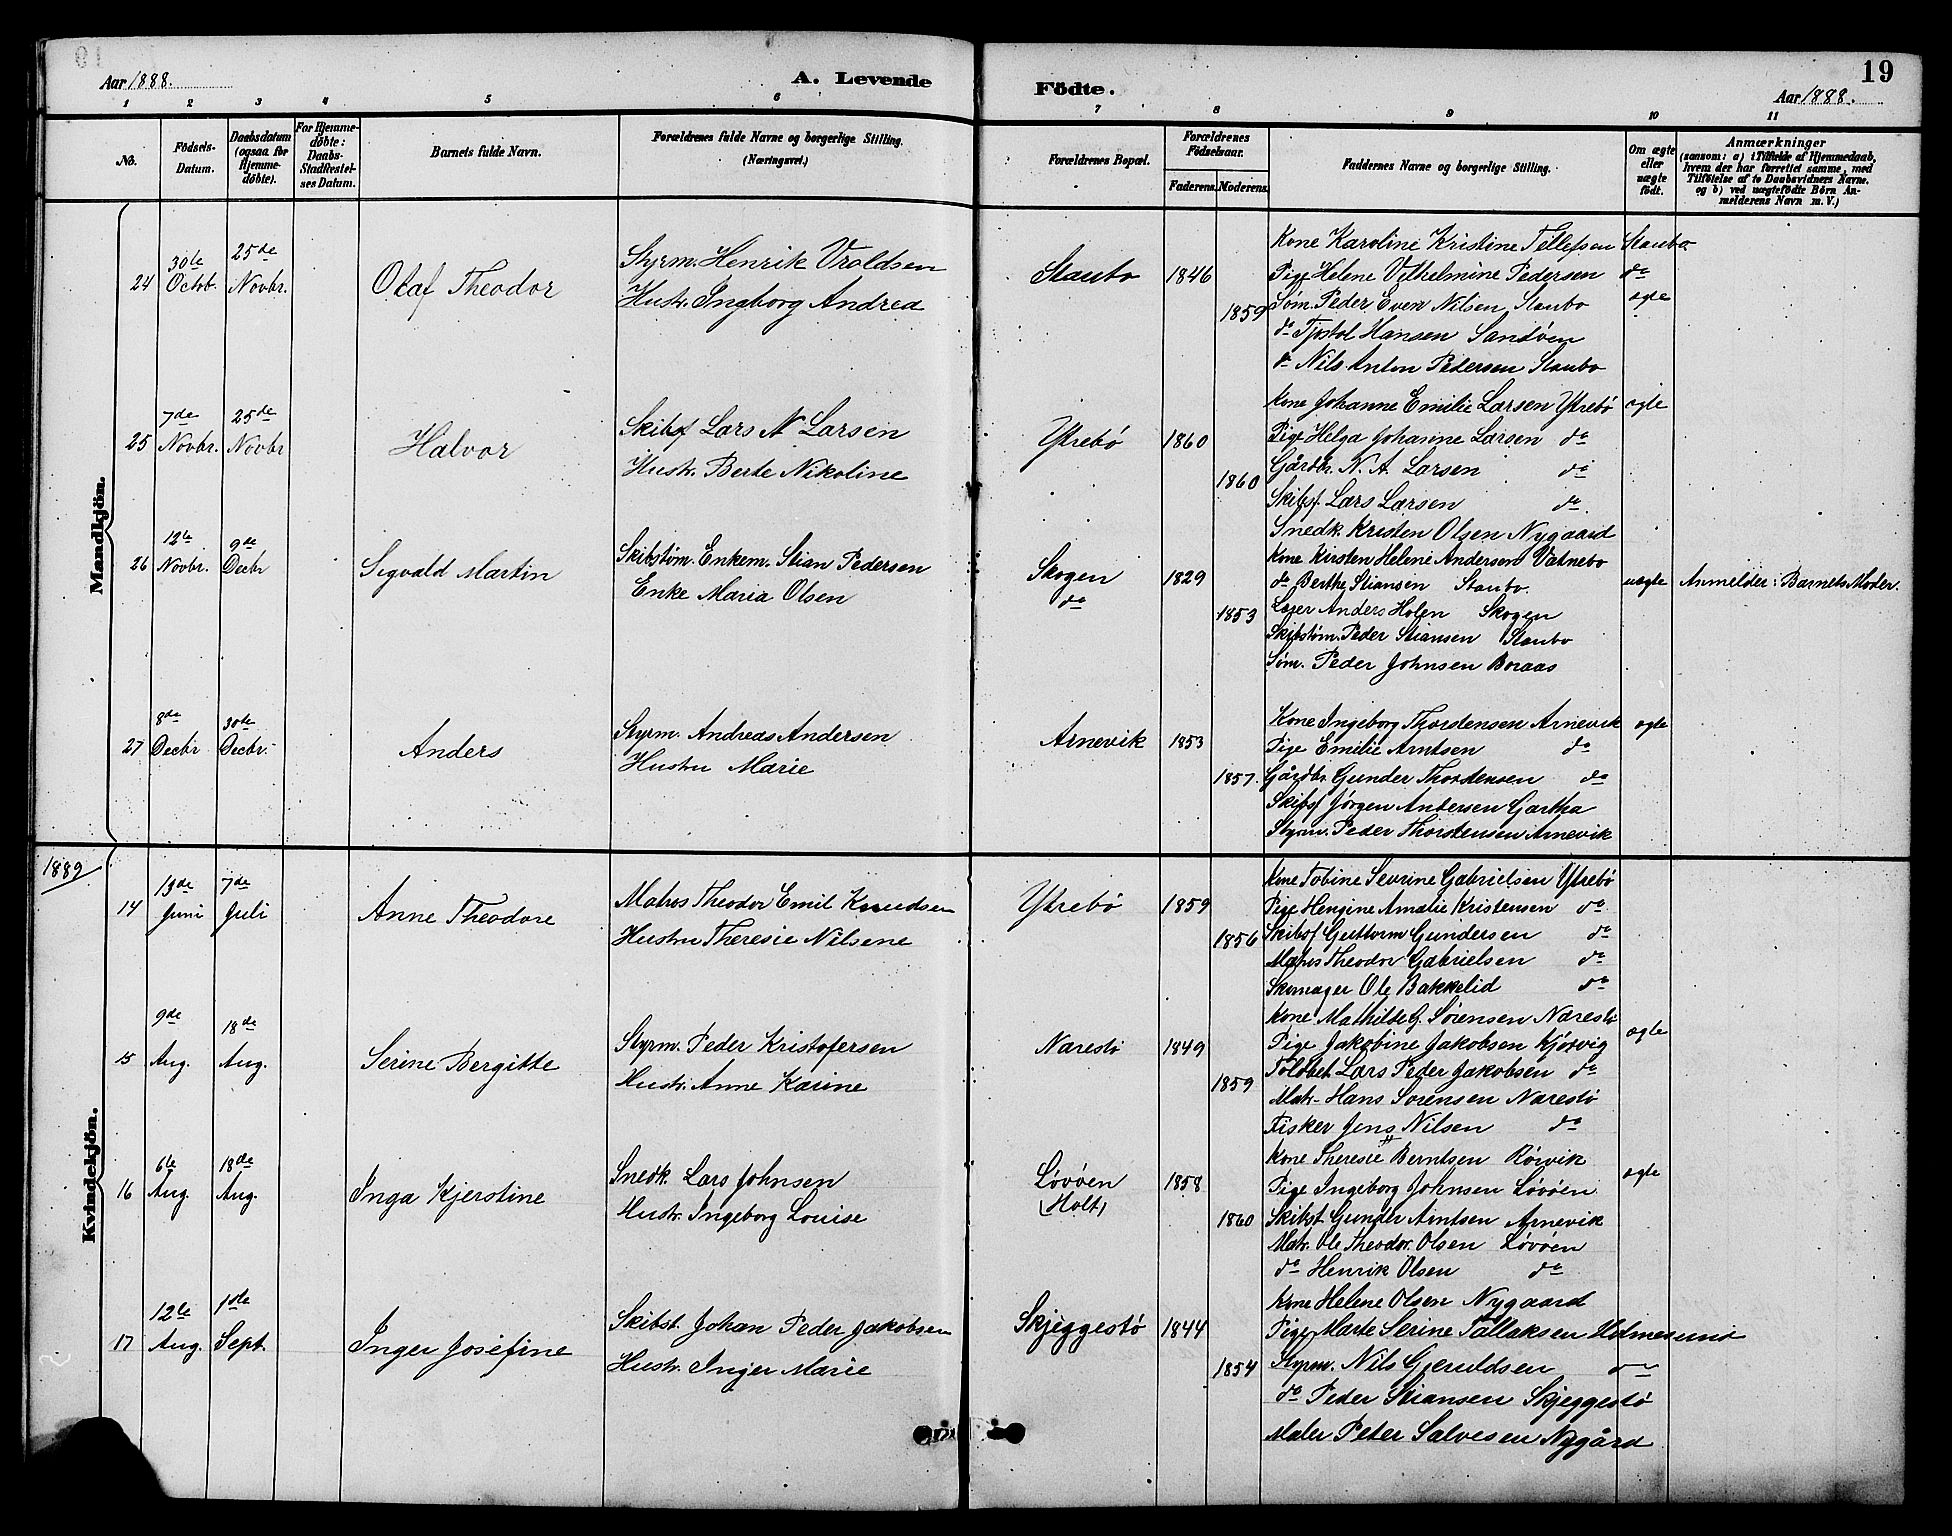 Aar 1888.
A. Levende
Födte.
19
Aar 1888.
1 2 3 4 5 6 7 8 9 10 11
No.
Födsels-Datum.
Daabsdatum (ogsaa for Hjemme-döbte).
For Hjemme-döbte: Daabs-Stadfæstel-ses Datum.
Barnets fulde Navn.
Forældrenes fulde Navne og borgerlige Stilling. (Næringsvei.)
Forældrenes Bopæl.
Forældrenes Födselsaar.
Faderens. Moderens.
Faddernes Navne og borgerlige Stilling.
Om ægte eller uægte födt.
Anmærkninger
(saasom: a) i Tilfælde af Hjemmedaab,
hvem der har forrettet samme, med
Tilföielse af to Daabsvidners Navne.
og b) ved uægtefödte Børn An-
melderens Navn m. V.)
Mandkjön.
24 30te Octob. 25de Novbr. Olaf Theodor
Styrm. Henrik Vroldsen
Hustr. Ingborg Andrea
Staubo 1846 1859
Kone Karoline Kristine Tellefsen Staubo
Pige Helene Vilhelmine Pedersen do
Søm. Peder Even Nilsen Staubo
do Tjøstol Hansen Sandøen
do Nils Anton Pedersen Staubo
ægte
25 7de Novbr. 25de Novbr Halvor
Skibsf Lars N Larsen
Hustr. Berte Nikoline
Ytrebø 1860 1860
Kone Johanne Emilie Larsen Ytrebø ægte
Pige Helga Johanne Larsen do
Gårdbr. N. A. Larsen do
Skibsf. Lars Larsen do
Snedk. Kristen Olsen Nygaard
26 12te Novbr. 9de Decbr Sigvald Martin
Skibstøm. Enkem. Stian Pedersen
Enke Maria Olsen
Skogen do 1829 1853
Kone Kirsten Helene Andersen Vatnebo
do Berthe Stiansen Staubo.
Anders Holen Skogen
Skibstøm. Peder Stiansen Staubo
Søm. Peder Johnsen Boraas
uægte Anmelder: Barnets Moder.
27 8de Decbr 30te Decbr. Anders
Styrm. Andreas Andersen
Hustru Marie
Arnevik 1853 1857.
Kone Ingeborg Thorstensen Arnevik ægte
Pige Emilie Arntsen do
Gårdbr. Gunder Thorstensen do
Skibsf Jørgen Andersen Gartha
Styrm. Peder Thorstensen Arnevik
1889
Kvindekjön.
14 13de Juni 7de Juli Anne Theodore
Matros Theodor Emil Knudsen
Hustru Theresie Nilsene
Ytrebø 1859 1856
Kone Tobine Sevrine Gabrielsen Ytrebø
Pige Hengine Amalie Kristensen do
Skibsf Guttorm Gundersen do
Matros Theodor Gabrielsen do
Skomager Ole Bakkelid do
15 9de Aug. 18de Aug. Serine Bergitte
Styrm. Peder Kristofersen
Hustr. Anne Karine
Narestø 1849 1859
Kone Mathilde G. Sörensen Narestø
Pige Jakobine Jakobsen Kjørvig ægte
Toldbet. Lars Peder Jakobsen do
Matr. Hans Sorensen Narestø
Fisker Jens Nilsen do
16 6te Aug. 18de Aug. Inga Kjerstine
Snedk. Lars Johnsen
Hustr. Ingeborg Louise
Løvøen (Holt) 1858 1860
Kone Theresie Berntsen Rørvik
Pige Ingeborg Johnsen Løvøen ægte
Skibst. Gunder Arntsen Arnevik
Matr. Ole Theodor. Olsen Løvøen
do Henrik Olsen do
17 12te Aug. 1ste Sept. Inger Josefine
Skibst. Johan Peder Jakobsen
Hustr. Inger Marie
Skjeggestø 1844 1854
Kone Helene Olsen Nygaard
Pige Marte Serine Tallaksen Holmesund
Styrm. Nils Gjeruldsen do
do Peder Stiansen Skjeggestø
Maler Peter Salvesen Nygård